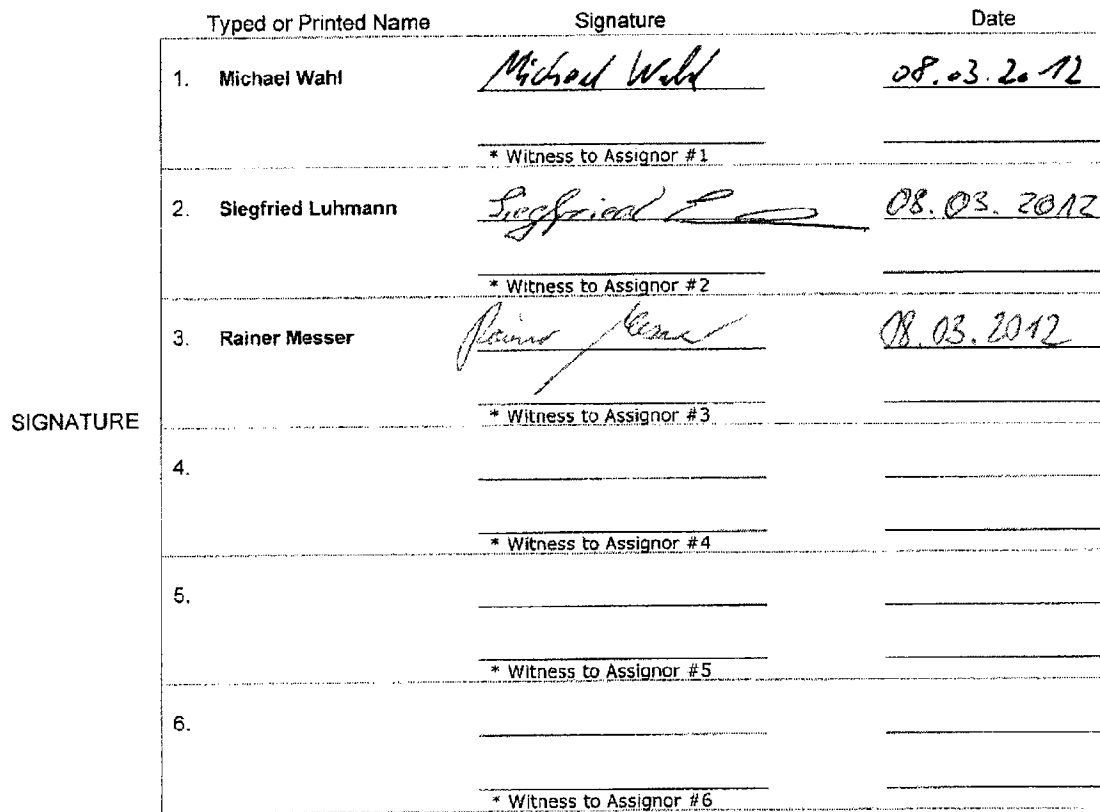 Typed or Printed Name Signature Date
1. Michael Wahl Michael Wahl 08.03.2012
* Witness to Assignor #1
2. Siegfried Luhmann Siegfried 08.03.2012
* Witness to Assignor #2
3. Rainer Messer Rainer Messer 08.03.2012
* Witness to Assignor #3
SIGNATURE
4.
* Witness to Assignor #4
5.
* Witness to Assignor #5
6.
* Witness to Assignor #6